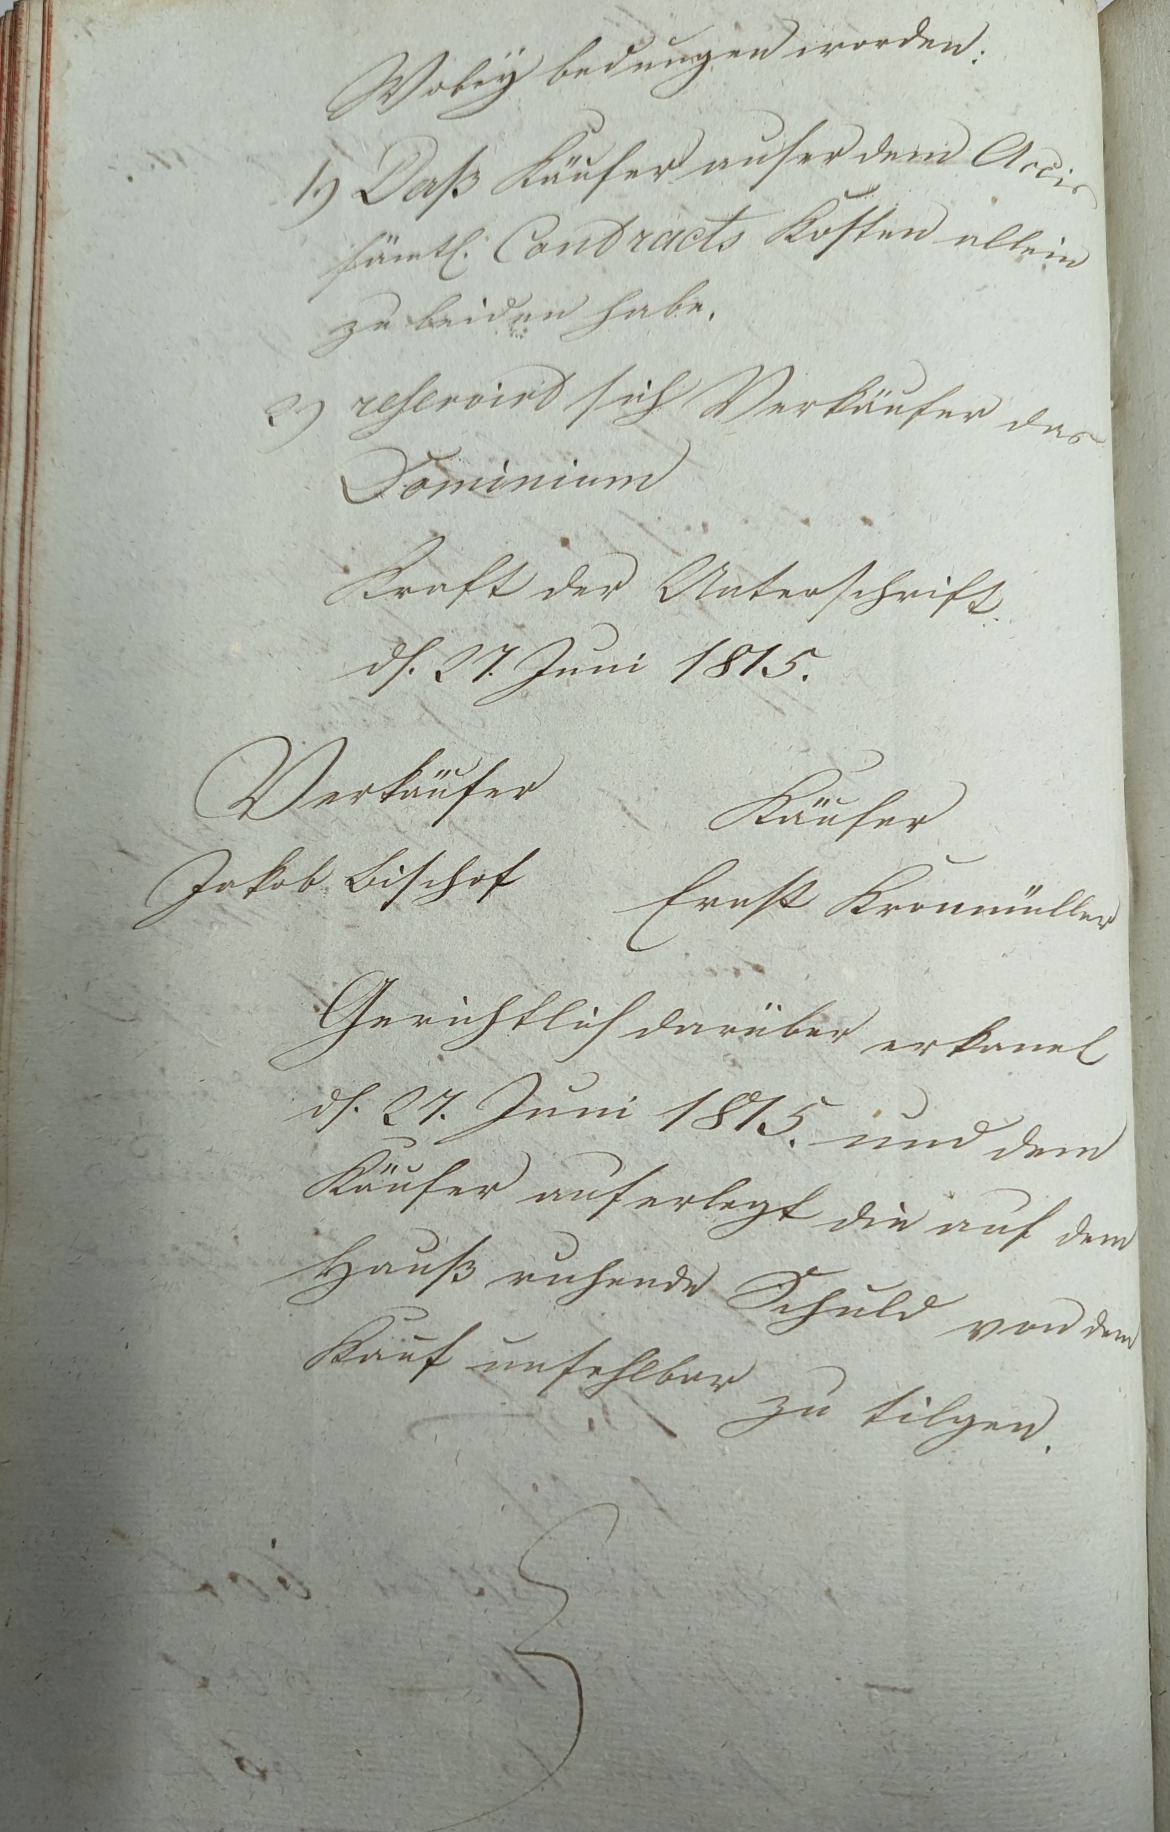 Wobey bedungen worden:
1.) Daß Käufer auser dem Accis
sämtl. Contracts Kosten allein
zu leiden habe.
2.) reservirt sich Verkäufer das
Dominium
Kraft der Unterschrift
d. 27. Juni 1815.
Verkäufer
Käufer
Jakob Bischof
Ernst Kronmüller
Gerichtlich darüber erkannt
d. 27. Juni 1815. und dem
Käufer auferlegt die auf dem
Hauß ruhende Schuld von dem
Kauf unfehlbar zu tilgen.